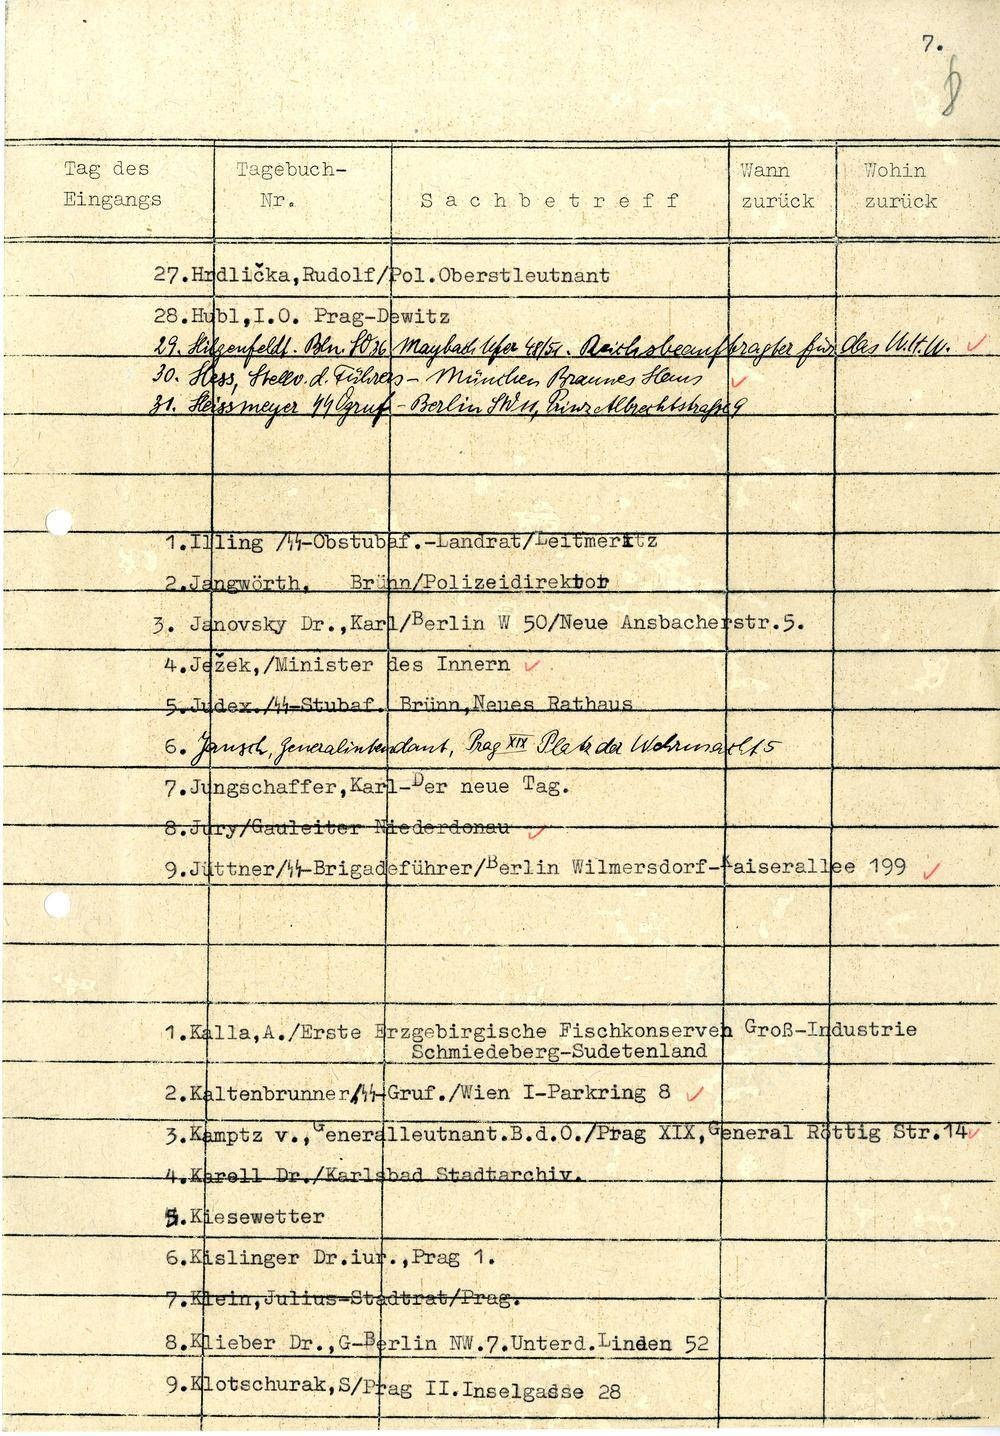 7.
8
Tag des Eingangs
Tagebuch-Nr.
Sachbetreff
Wann zurück
Wohin zurück
27.Hrdlička,Rudolf/Pol.Oberstleutnant
28.Hubl,I.O. Prag-Dewitz
29. Hilgenfeldt. Bln. SO 36 Maybach Ufer 48/51. Reichsbeauftragter für das W.H.W. ✓
30. Hess, Stellv. d. Führers - München Braunes Haus ✓
31. Heissmeyer SS Ogruf - Berlin SW 11, Prinz Albrechtstraße 9
1.Illing /SS-Obstubaf.-Landrat/Leitmeritz
2.Jangwörth, Brünn/Polizeidirektor
3. Janovsky Dr.,Karl/Berlin W 50/Neue Ansbacherstr.5.
4.Ježek,/Minister des Innern ✓
5.Judex./SS-Stubaf. Brünn,Neues Rathaus
6. Jansch, Generalintendant, Prag XIX Platz der Wehrmacht 5
7.Jungschaffer,Karl-Der neue Tag.
8.Jury/Gauleiter Niederdonau ✓
9.Jüttner/SS-Brigadeführer/Berlin Wilmersdorf-Kaiserallee 199 ✓
1.Kalla,A./Erste Erzgebirgische Fischkonserven Groß-Industrie
Schmiedeberg-Sudetenland
2.Kaltenbrunner/SS-Gruf./Wien I-Parkring 8 ✓
3.Kamptz v.,Generalleutnant.B.d.O./Prag XIX,General Röttig Str.14 ✓
4.Karell Dr./Karlsbad Stadtarchiv.
5.Kiesewetter
6.Kislinger Dr.iur.,Prag 1.
7.Klein,Julius-Stadtrat/Prag.
8.Klieber Dr.,G-Berlin NW.7.Unterd.Linden 52
9.Klotschurak,S/Prag II.Inselgasse 28